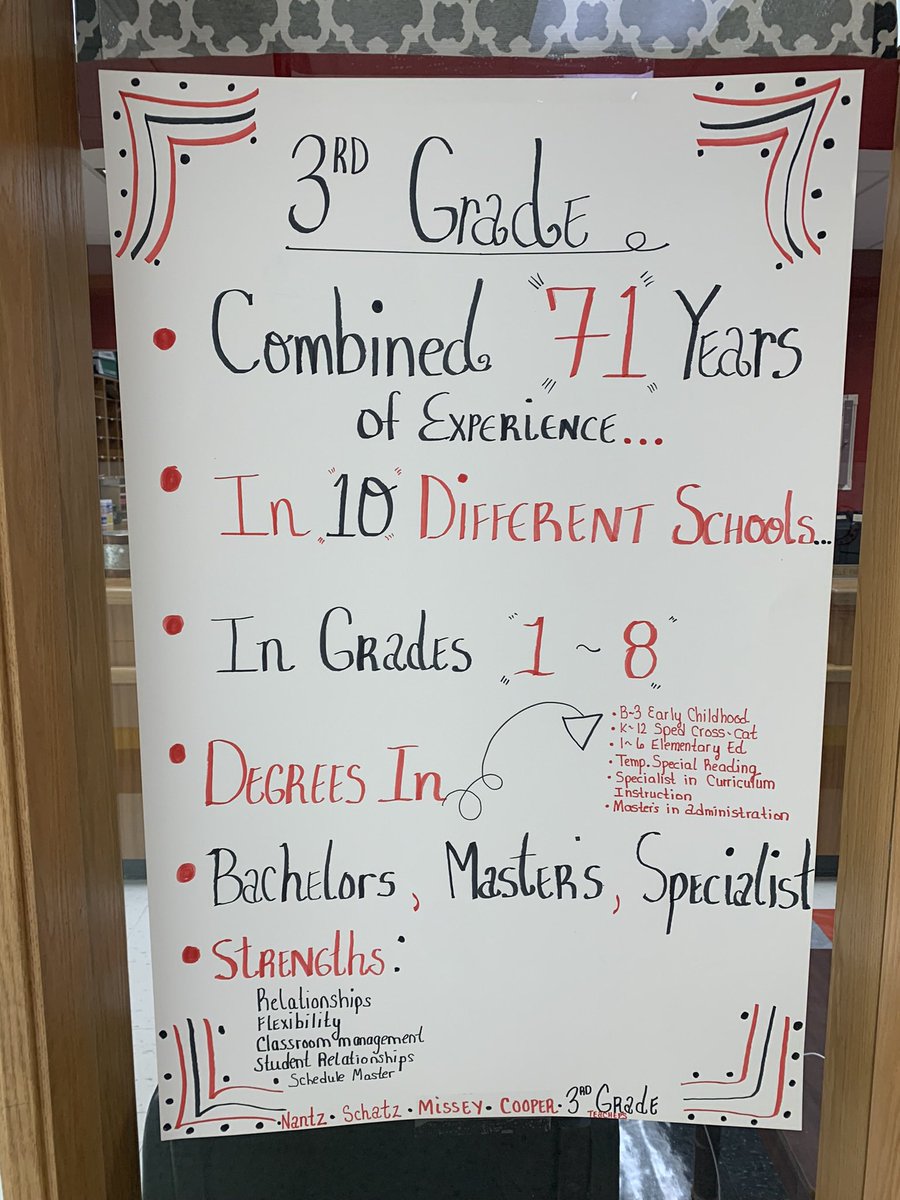 3RD Grade
• Combined "71" Years
of Experience...
• In "10" Different Schools...
• In Grades "1 ~ 8"
• Degrees In
• B-3 Early Childhood
• K-12 Sped Cross-cat
• 1~6 Elementary Ed
• Temp. Special Reading
• Specialist in Curriculum
Instruction
• Master's in administration
• Bachelors, Master's, Specialist
• Strengths:
Relationships
Flexibility
Classroom management
Student Relationships
• Schedule Master
• Nantz • Schatz • Missey • Cooper • 3RD Grade
Teachers